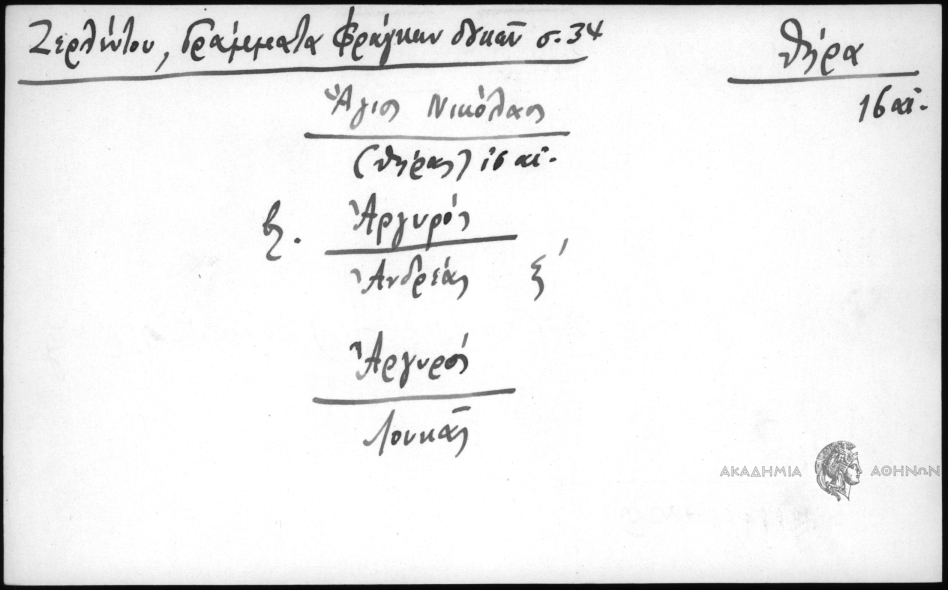 Ζερλέντου, Γράμματα Φράγκων δουκῶν σ. 34
Θήρα
16 αἰ.
Ἅγιος Νικόλαος
(Θήρας) 16 αἰ.
βλ. Ἀργυρός
Ἀνδρέας ξ΄
Ἀργυρός
Λουκᾶς
ΑΚΑΔΗΜΙΑ ΑΘΗΝΩΝ